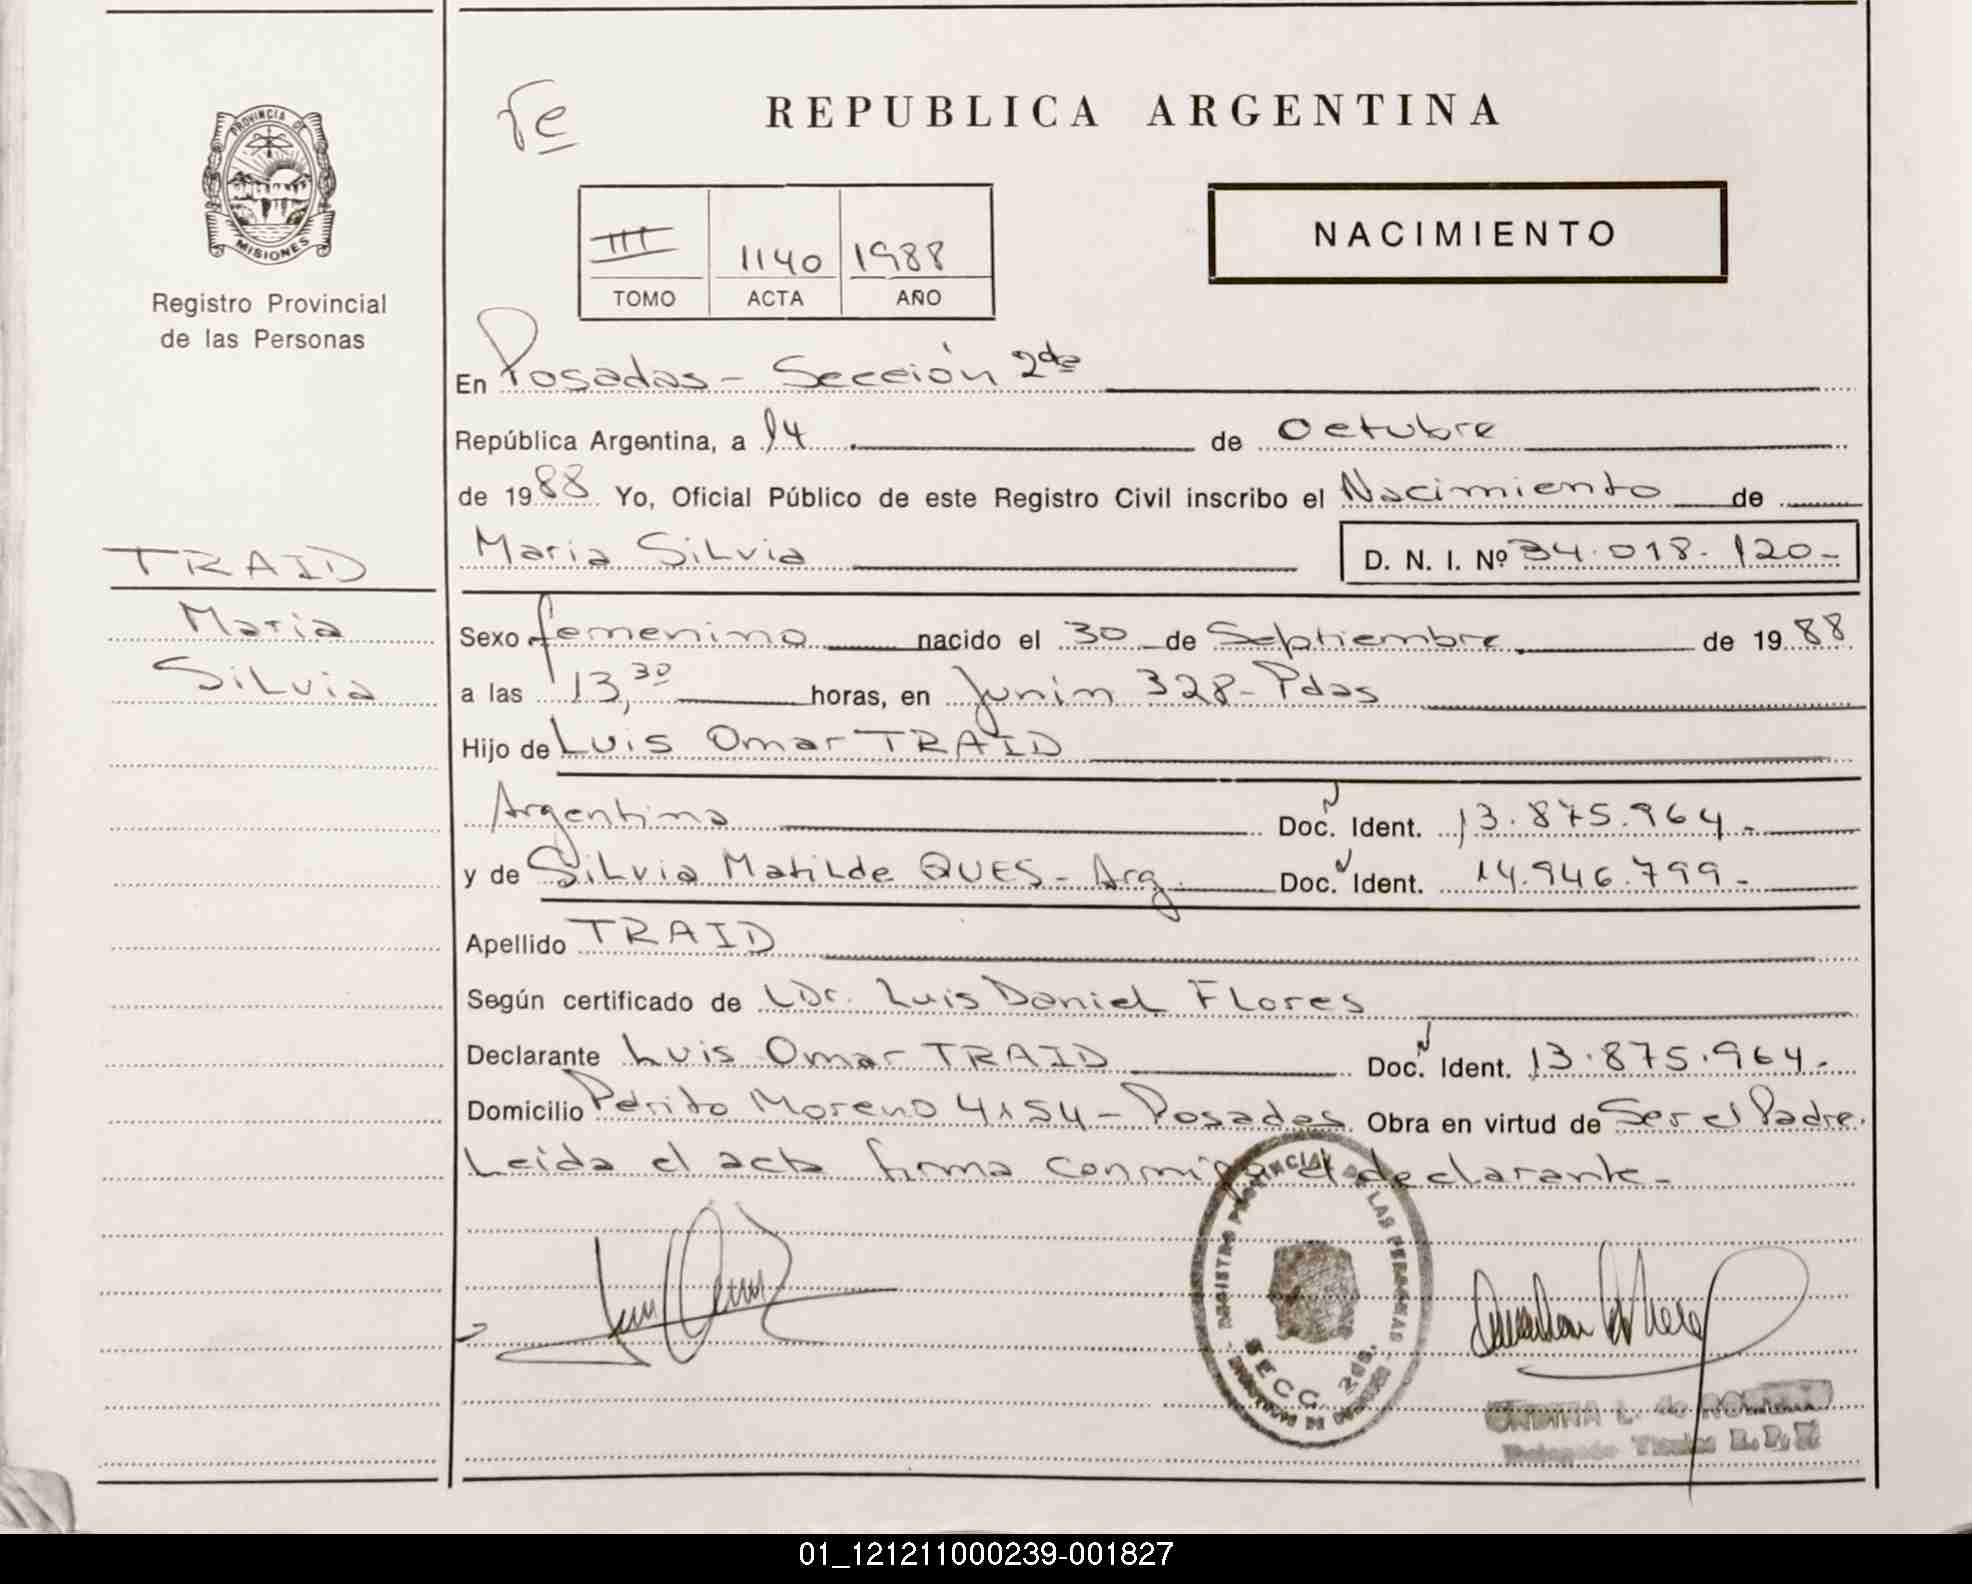 Fe
REPUBLICA ARGENTINA
PROVINCIA DE
MISIONES
Registro Provincial
de las Personas
III 1140 1988
TOMO ACTA AÑO
NACIMIENTO
En Posadas - Sección 2da
República Argentina, a 14 de Octubre
de 1988 Yo, Oficial Público de este Registro Civil inscribo el Nacimiento de
Maria Silvia D. N. I. Nº 34.018.120-
TRAID
Maria
Silvia
Sexo femenino nacido el 30 de Septiembre de 1988
a las 13,30 horas, en Junin 328 - Pdas
Hijo de Luis Omar TRAID
Argentino Doc. Ident. 13.875.964-
y de Silvia Matilde QUES - Arg. Doc. Ident. 14.946.799-
Apellido TRAID
Según certificado de Dr. Luis Daniel Flores
Declarante Luis Omar TRAID Doc. Ident. 13.875.964-
Domicilio Perito Moreno 4154 - Posadas Obra en virtud de Ser el Padre.
Leida el acta firma conmigo el declarante-
REGISTRO PROVINCIAL DE LAS PERSONAS
SECC. 2da.
01_121211000239-001827